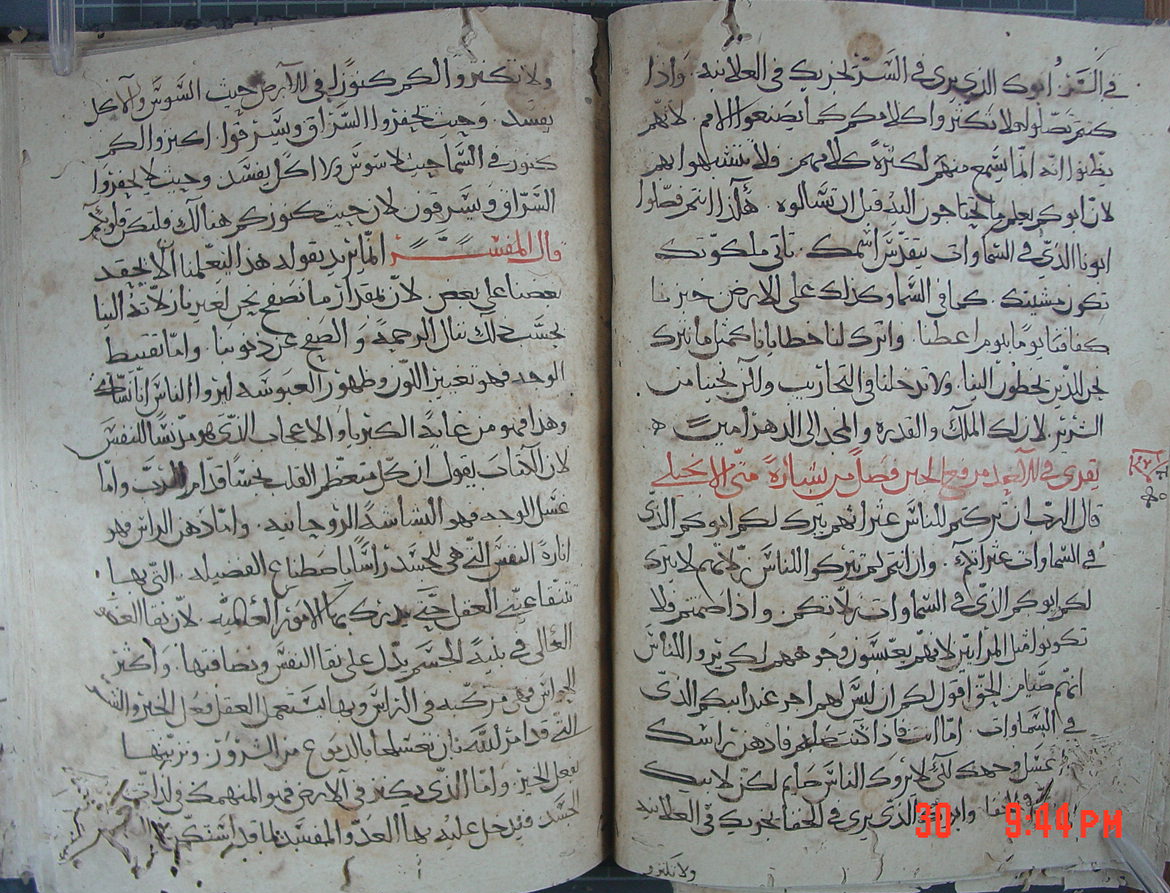 في السر. ابوك الذي يرى في السر يجزيك في العلانيه. واذا
كنتم تصلوا فلا تكثروا كلامكم كما يصنعوا الامم. لانهم
يظنوا انه انما يسمع منهم لكثرة كلامهم. فلا تتشبهوا بهم
لان ابوكم يعلم ما تحتاجون اليه قبل ان تسالوه. هكذا انتم فصلوا
ابونا الذي في السماوات يتقدس اسمك. تاتي ملكوتك
تكون مشيتك كما في السما وكذلك على الارض خبزنا
كفافنا يوما بيوم اعطنا. واترك لنا خطايانا كمثل ما نترك
نحن للذين يخطون الينا. ولا تدخلنا في التجاريب ولكن نجينا من
الشرير لان لك الملك والقدره والمجد الى الدهر امين
يقرى في الاحد من رفع الجبن فصل من بشارة متى الانجيلي
قال الرب ان تركتم للناس عثراتهم يترك لكم ابوكم الذي
في السماوات عثراتكم. وان انتم لم تتركوا للناس زلاتهم لا يترك
لكم ابوكم الذي في السماوات زلاتكم. واذا صمتم فلا
تكونوا مثل المرايين لانهم يعبسون وجوههم لكي يروا للناس
انهم صيام الحق اقول لكم ان ليس لهم اجر عند ابيكم الذي
في السماوات. اما انت فاذا كنت صايم فادهن راسك
غسل وجهك لئلا يروك الناس صايم لكن لابيك
في الخفا وابوك الذي يرى في الخفا يجزيك في العلانيه
ولا تكنزو
ولا تكنزوا لكم كنوزا في الارض حيث السوس والاكل
يفسد. وحيث يحفروا السراق ويسرقوا. اكنزوا لكم
كنوز في السما حيث لا سوس ولا اكل يفسد وحيث لا يحفروا
السراق ويسرقون لان حيث كنوزكم هنالك فلتكن قلوبكم
قال المفسر انما يريد بقوله هذا التعلمنا الا يحقد
بعضنا على بعض لان بمقدار ما نصفح نحن لغيرنا زلاته الينا
بحسب ذلك ننال الرحمة والصفح عن ذنوبنا. واما تقبيط
الوجه فهو تغييز اللون وظهور العبوسه ليروا الناس انا نساك
وهذا فهو من غاية الكبريا والاعجاب الذي هو من نسا للنفس
لان الكتاب يقول ان كل متعظم القلب نجسا قدام الرب واما
غسل الوجه فهو البشاشة الروحانيه. واما دهن الراس فهو
انارة النفس التي هي للجسد راسا باصطناع الفضيله. التي بها
تتنقا عيني العقل حتى يدرك بها الامور العالميه. لان نقا العقل
العالي في بنية الجسم يدل على نقا النفس ونصافتها. واكثر
الحواس وهي مركبه في الراس وبها يستعمل العقل فعل الخير والشر
التي قد امر الله بان نغسلها بالدموع من الشرور. ونزينها
بفعل الخير. واما الذي يكنز في الارض فهو المنهمك في لذات
الجسد فيدخل عليه بها العدو المفسد
30 9:44 PM